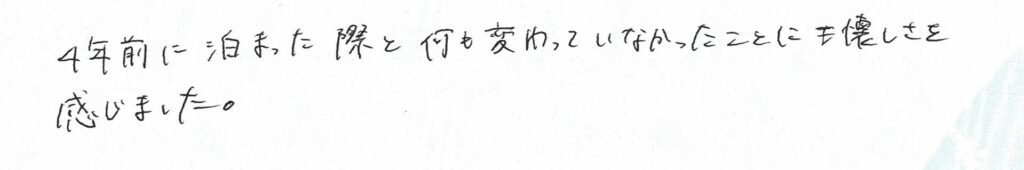 4年前に泊まった際と何も変わっていなかったことにも懐しさを
感じました。